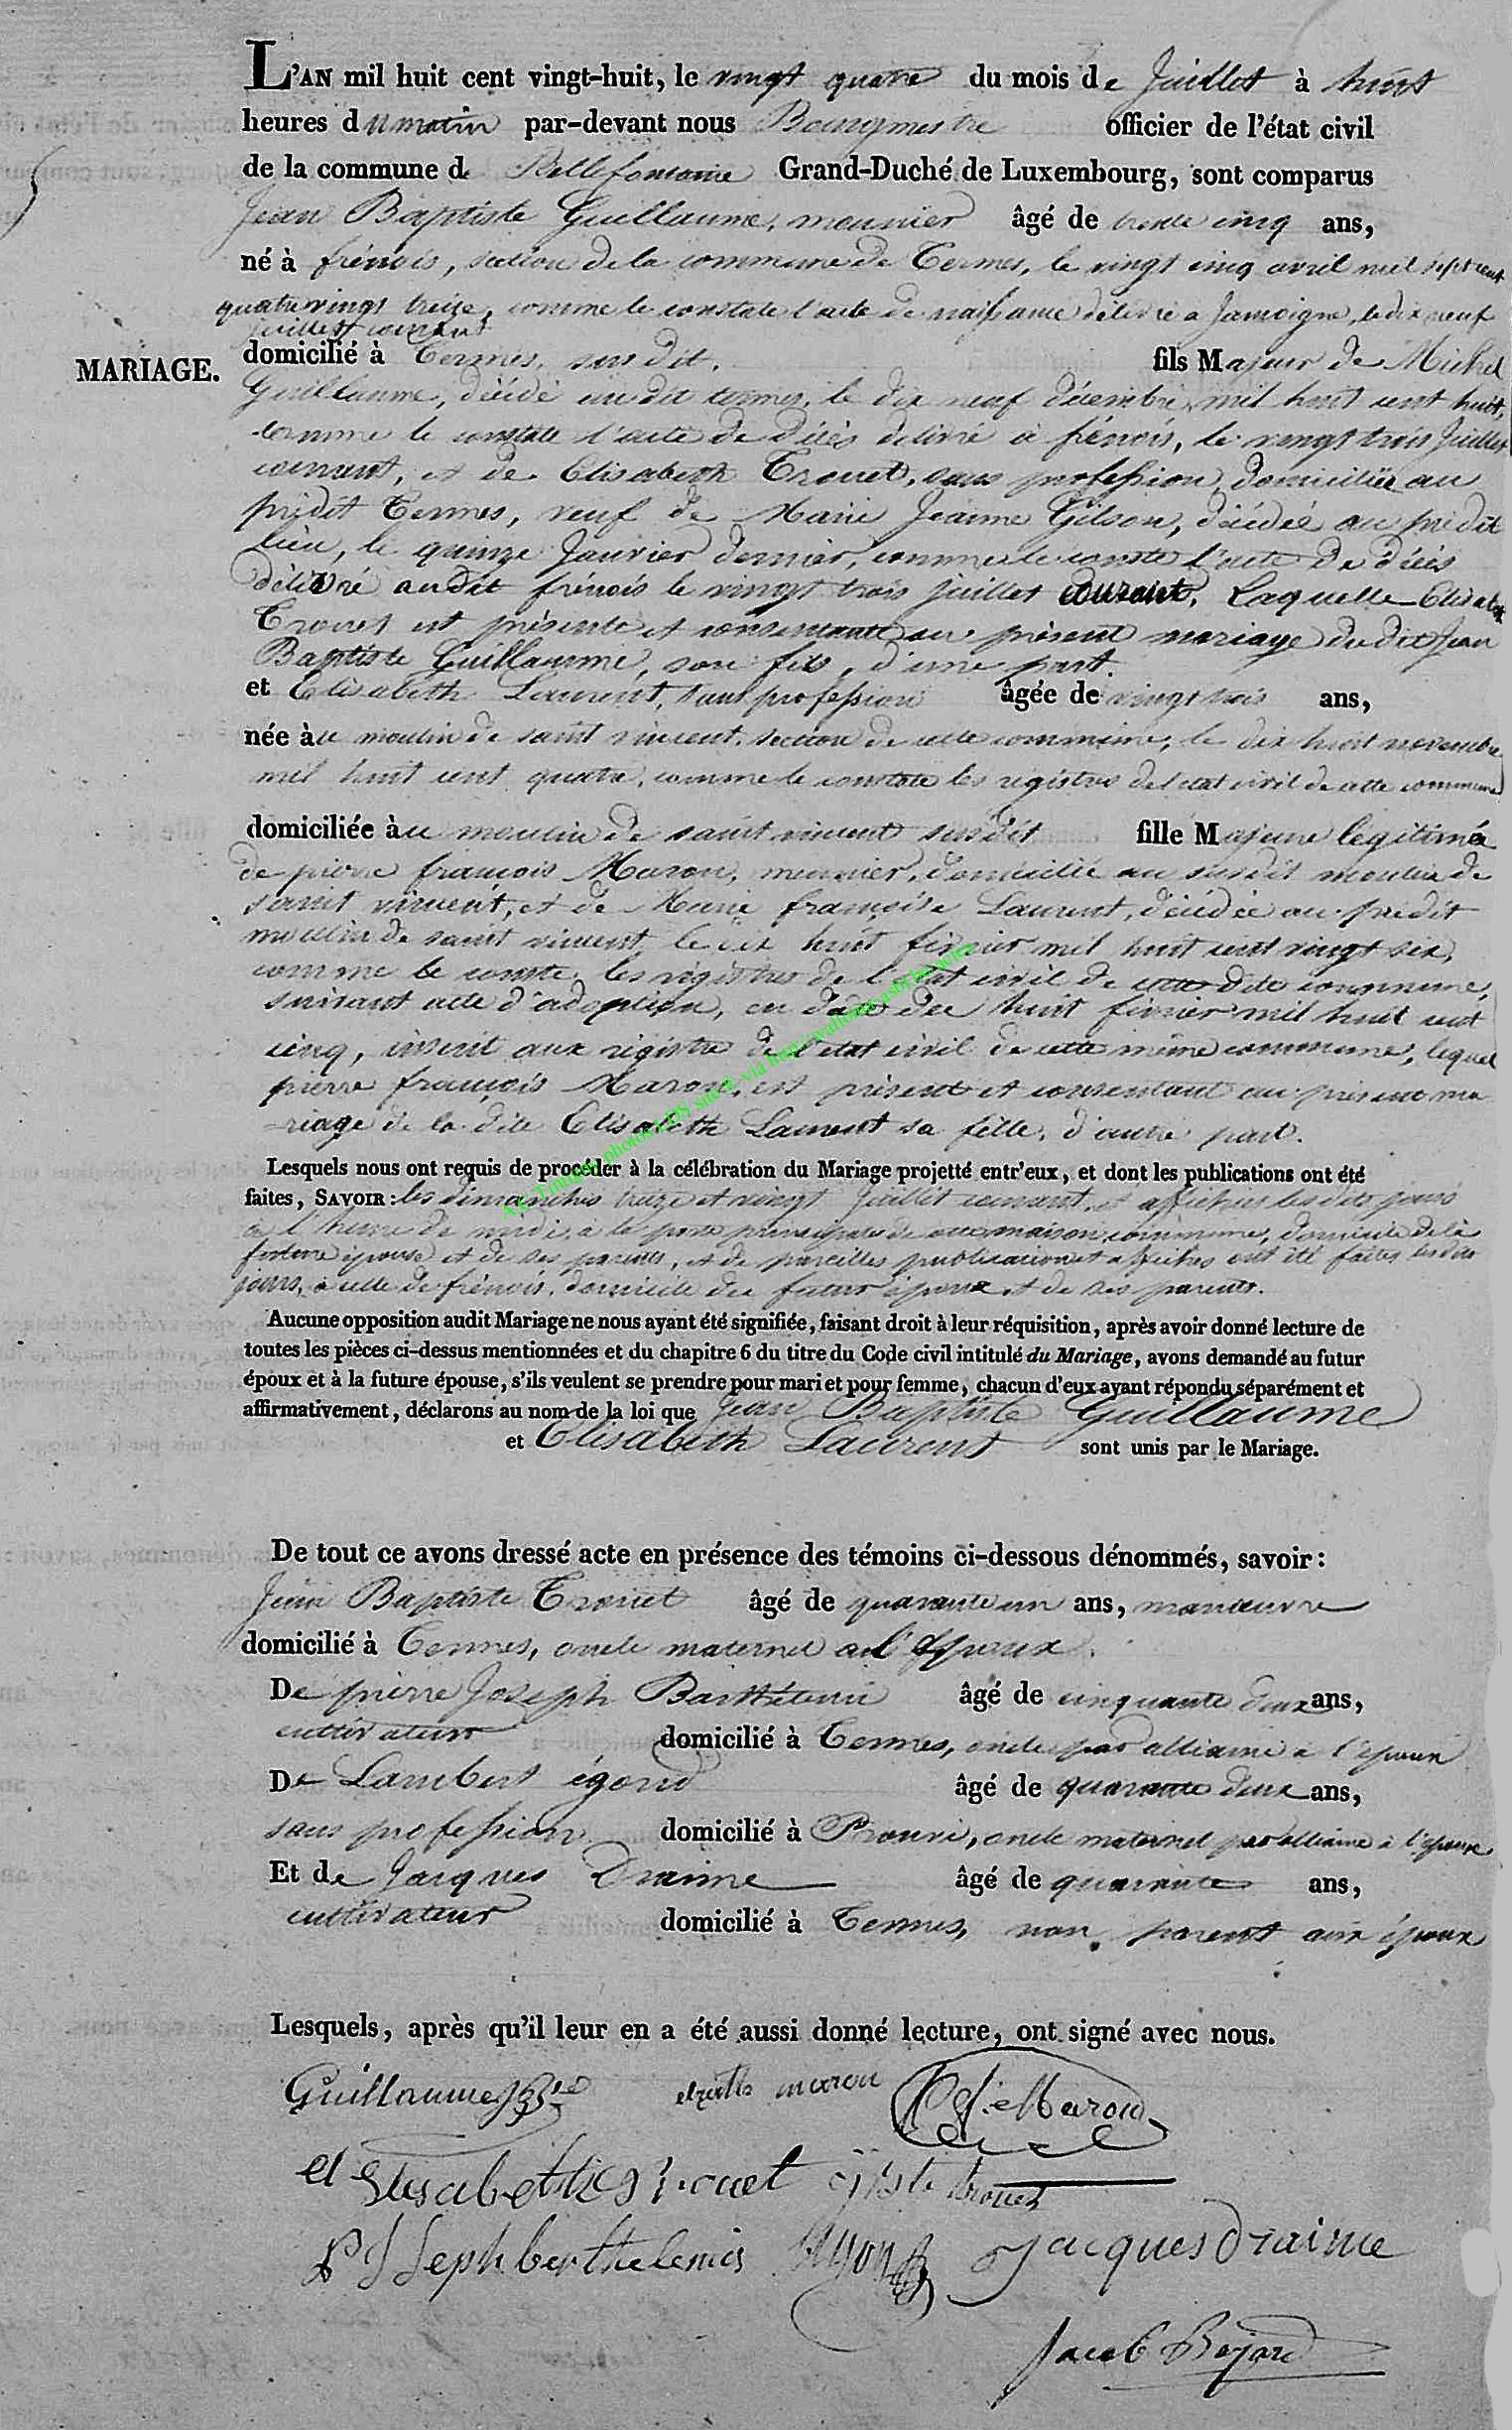 L'AN mil huit cent vingt-huit, le vingt quatre du mois de Juillet à huit
heures du matin par-devant nous Bourgmestre officier de l'état civil
de la commune de Bellefontaine Grand-Duché de Luxembourg, sont comparus
Jean Baptiste Guillaume, meunier âgé de trente cinq ans,
né à frénois, section de la commune de Termes, le vingt cinq avril mil sept cent
quatre vingt treize, comme le constate l'acte de naissance délivré a Jamoigne, le dix neuf
juillet courant
MARIAGE.
domicilié à Termes, sus dit, fils Majeur de Michel
Guillaume, décédé au dit termes, le dix neuf décembre mil huit cent huit,
comme le constate l'acte de décès délivré à frénois, le vingt trois Juillet
courant, et de Elisabeth Trouet, sans profession, domiciliée au
prédit Termes, veuf de Marie Jeanne Gilson, décédée au prédit
lieu, le quinze Janvier dernier, comme le conste l'acte de décès
délivré audit frénois le vingt trois juillet courant, Laquelle Elisabeth
Trouet est présente et consentante au présent mariage du dit Jean
Baptiste Guillaume, son fils, d'une part.
et Elisabeth Laurent, sans profession âgée de vingt trois ans,
née àu moulin de saint vincent, section de cette commune, le dix huit novembre
mil huit cent quatre, comme le constate les registres de l'etat civil de cette commune
domiciliée àu moulin de saint vincent susdit fille Majeure legitimée
de pierre françois Maron, meunier, domicilié au susdit moulin de
saint vincent, et de Marie françoise Laurent, décédée au prédit
moulin de saint vincent le dix huit février mil huit cent vingt six,
comme le conste les régistres de l'état civil de cette dite commune,
suivant acte d'adoption, en date du huit février mil huit cent
cinq, inscrit aux régistre de l'etat civil de cette même commune, lequel
pierre françois Maron, est présent et consentant au présent ma
riage de la dite Elisabeth Laurent sa fille, d'autre part.
Lesquels nous ont requis de procéder à la célébration du Mariage projetté entr'eux, et dont les publications ont été
faites, SAVOIR : les dimanches treize et vingt Juillet courant, et affichées les dits jours
à l'heure de midi, à la porte principale de cette maison commune, domicile de la
future épouse et de ses parents, et de pareilles publications et affiches ont été faites lesdits
jours, à celle de frénois, domicile du futur époux et de ses parents.
Aucune opposition audit Mariage ne nous ayant été signifiée, faisant droit à leur réquisition, après avoir donné lecture de
toutes les pièces ci-dessus mentionnées et du chapitre 6 du titre du Code civil intitulé du Mariage, avons demandé au futur
époux et à la future épouse, s'ils veulent se prendre pour mari et pour femme, chacun d'eux ayant répondu séparément et
affirmativement, déclarons au nom de la loi que Jean Baptiste Guillaume
et Elisabeth Laurent sont unis par le Mariage.
De tout ce avons dressé acte en présence des témoins ci-dessous dénommés, savoir :
Jean Baptiste Trouet âgé de quarante un ans, manœuvre
domicilié à Termes, oncle maternel a l'Epoux.
De pierre Joseph Barthélemi âgé de cinquante deux ans,
cultivateur domicilié à Termes, oncle par alliance a l'époux
De Lambert égond âgé de quarante deux ans,
sans profession domicilié à Prouvi, oncle maternel par alliance à l'épouse
Et de Jacques Draime âgé de quarante ans,
cultivateur domicilié à Termes, non parent aux époux
Lesquels, après qu'il leur en a été aussi donné lecture, ont signé avec nous.
Guillaume JBte maron P f. Maron
Elisabeth trouet j Bte trouet
P J Joseph berthelemi Jacques Draime
Jacob